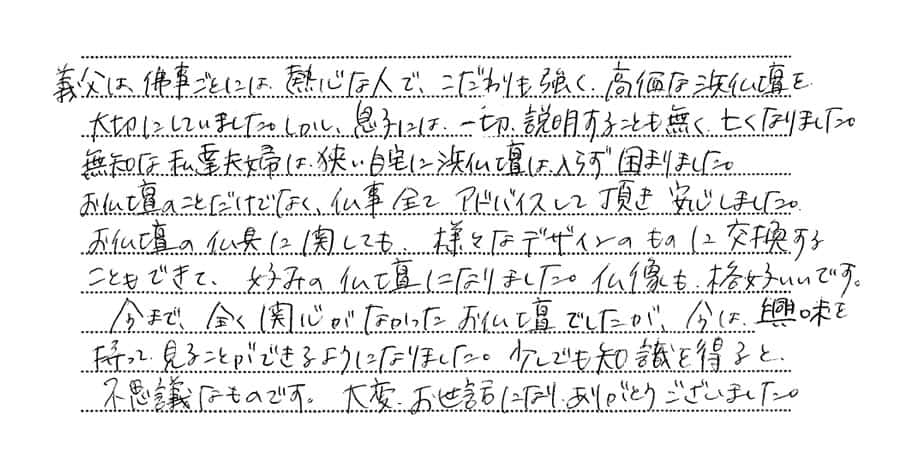 義父は、佛事ごとには、熱心な人で、こだわりも強く、高価な浜仏壇を
大切にしていました。しかし、息子には、一切、説明することも無く、亡くなりました。
無知な私達夫婦は、狭い自宅に浜仏壇は、入らず困まりました。
お仏壇のことだけでなく、仏事全てアドバイスして頂き安心しました。
お仏壇の仏具に関しても、様々なデザインのものに交換する
こともできて、好みの仏壇になりました。仏像も、格好いいです。
今まで、全く関心がなかったお仏壇でしたが、今は、興味を
持って、見ることができるようになりました。少しでも知識を得ると、
不思議なものです。大変、お世話になり、ありがとうございました。